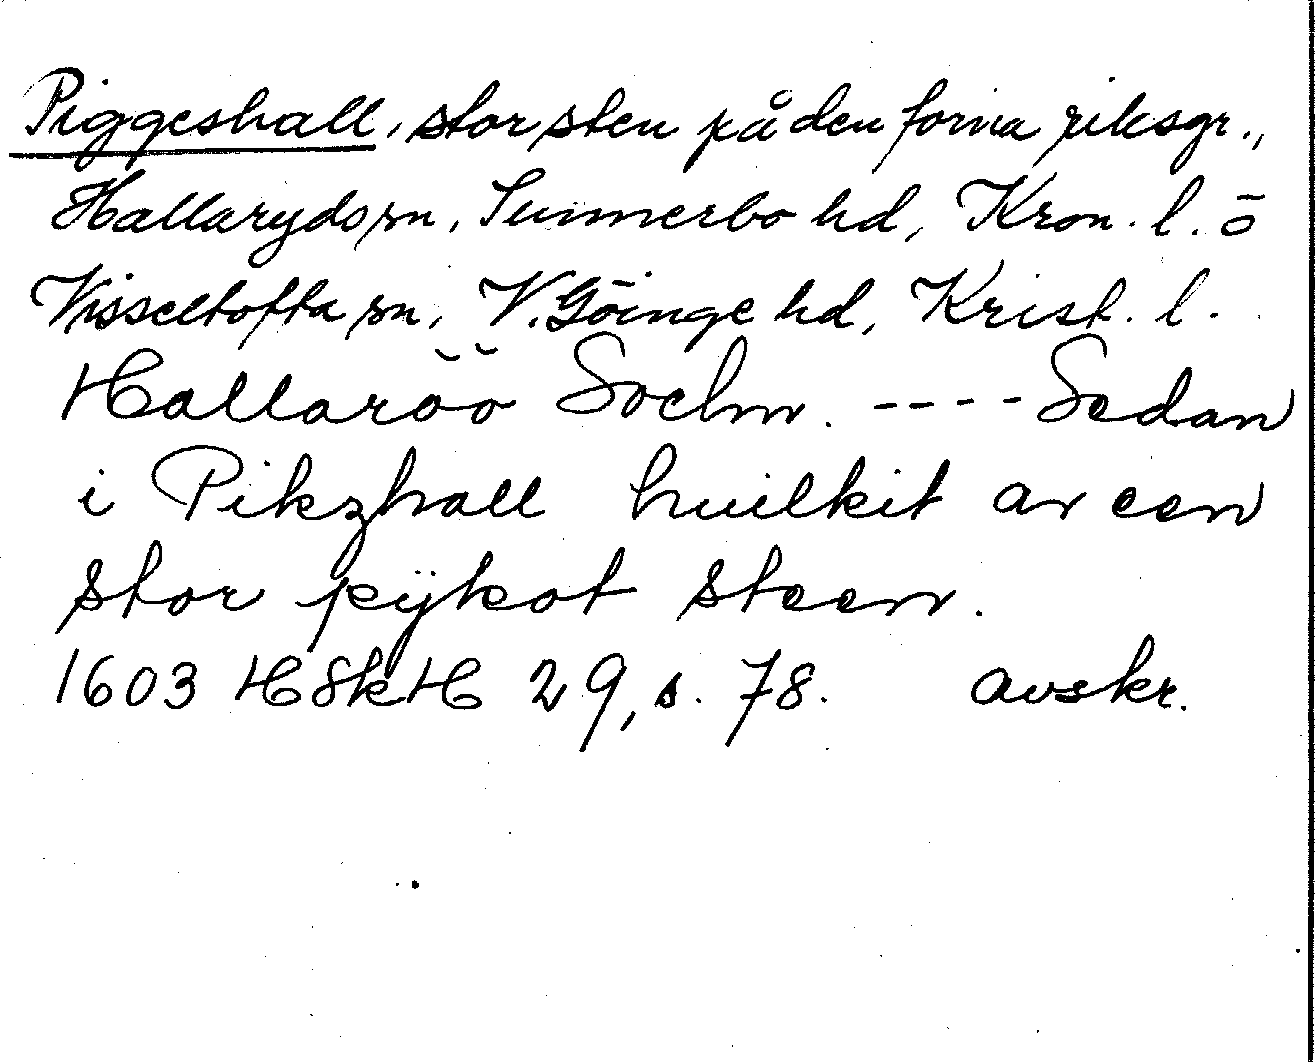 Piggeshall, stor sten på den forna riksgr.,
Hallaryds sn, Sunnerbo hd, Kron. l. o
Visseltofta sn, V. Göinge hd, Krist. l.
Hallaröö Sochn. ---- Sedan
i Pikzhall huilkit ar een
stor pÿkot steen.
1603 HSkH 29, s. 78. avskr.